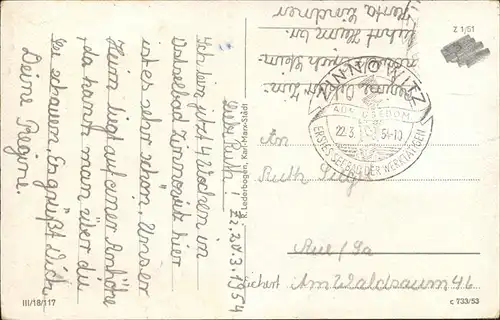 Zi. 24.3.1954
Liebe Ruth!
Ich bin jetzt 4 Wochen in
Ostseebad Zinnowitz hier
ist es sehr schön. Unser
Heim liegt auf einer Anhöhe
da kann man über die
See schauen. Es grüßt Dich
Deine Regine.
III/18/117
R. Lederbogen, Karl-Marx-Stadt
Z 1/51
ZINNOWITZ
AUF USEDOM
22.3. 54-10
ERSTES SEEBAD DER WERKTÄTIGEN
An
Ruth
Aue/Sa
Am Waldsaum 46
c 733/53